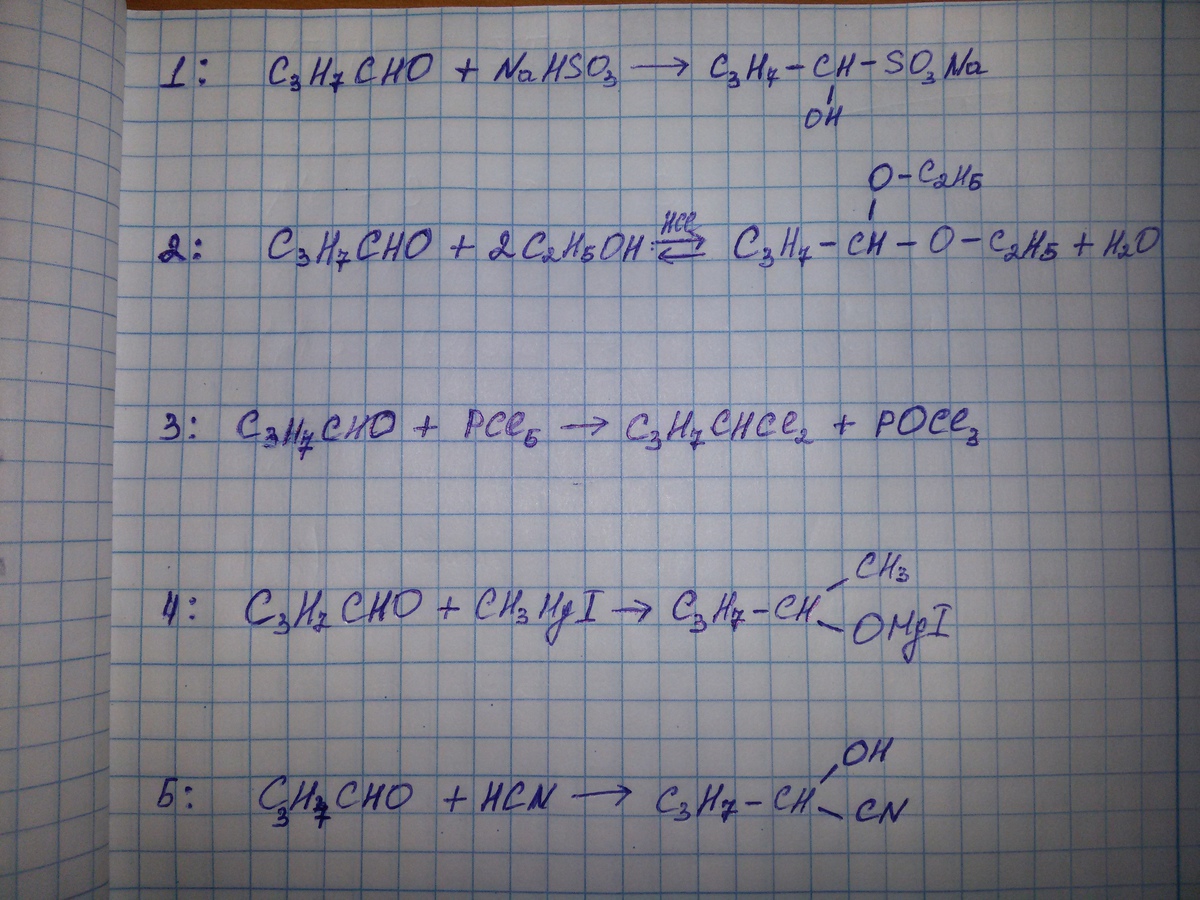 1: C₃H₇CHO + NaHSO₃ → C₃H₇-CH-SO₃Na
OH
O-C₂H₅
2: C₃H₇CHO + 2C₂H₅OH ⇌ HCl C₃H₇-CH-O-C₂H₅ + H₂O
3: C₃H₇CHO + PCl₅ → C₃H₇CHCl₂ + POCl₃
CH₃
4: C₃H₇CHO + CH₃MgI → C₃H₇-CH
OMgI
OH
5: C₃H₇CHO + HCN → C₃H₇-CH
CN